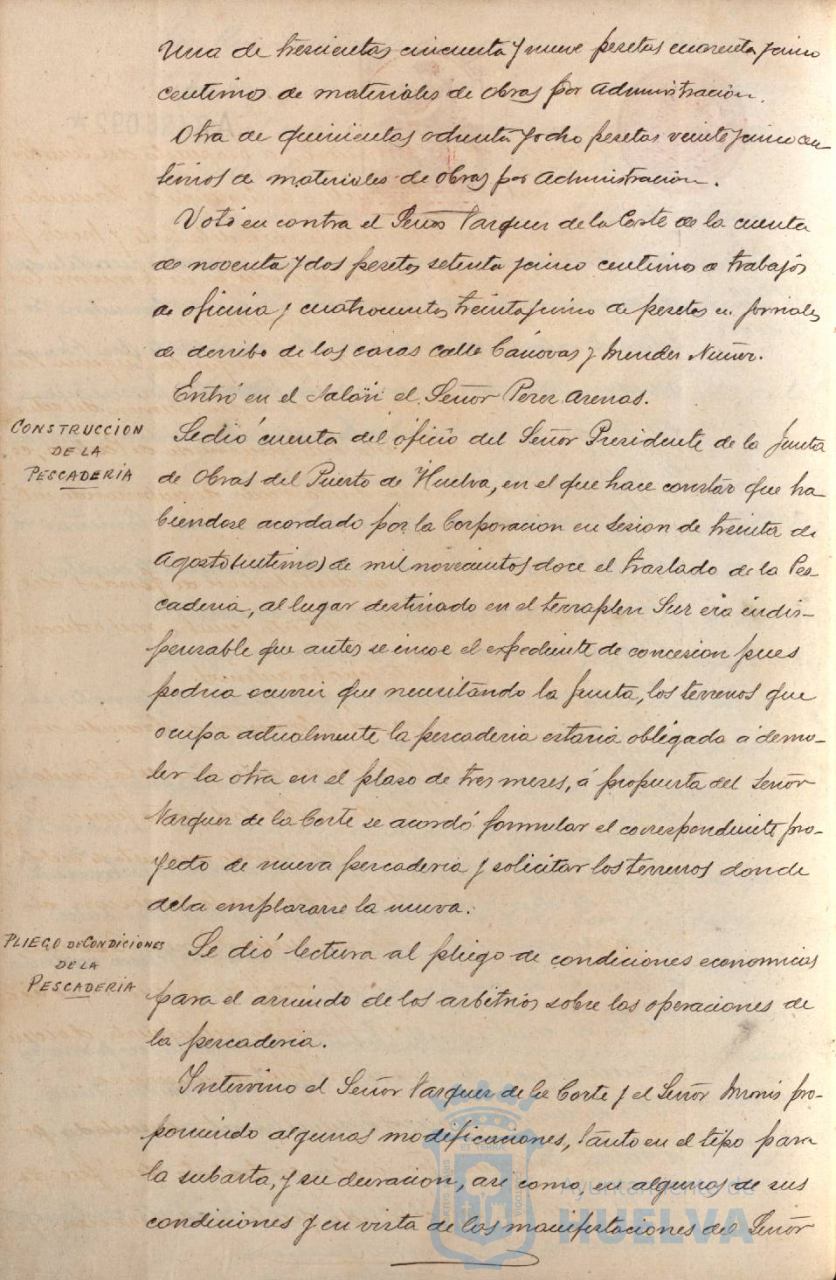 Una de trescientas cincuenta y nueve pesetas cuarenta y cinco
centimos de materiales de obras por administración.
Otra de quinientas ochenta y ocho pesetas veinte y cinco cen-
timos de materiales de obras por administración.
Votó en contra el Señor Vazquez de la Corte de la cuenta
de noventa y dos pesetas setenta y cinco centimos de trabajos
de oficina y cuatrocientos treinta y cinco de pesetas en jornales
de derribo de las casas calle Cánovas y Mendez Nuñez.
Entró en el Salón el Señor Perez Arenas.
CONSTRUCCION
DE LA
PESCADERIA
Se dió cuenta del oficio del Señor Presidente de la Junta
de Obras del Puerto de Huelva, en el que hace constar que ha-
biendose acordado por la Corporacion en sesion de treinta de
Agosto (ultimo) de mil novecientos doce el traslado de la Pes-
caderia, al lugar destinado en el terraplen Sur era indis-
pensable que antes se incoe el expediente de concesion pues
podria ocurrir que necesitando la Junta, los terrenos que
ocupa actualmente la pescaderia estaria obligada á demo-
ler la otra en el plazo de tres meses, á propuesta del Señor
Vazquez de la Corte se acordó formular el correspondiente pro-
yecto de nueva pescaderia y solicitar los terrenos donde
deba emplazarse la nueva.
PLIEGO DE CONDICIONES
DE LA
PESCADERIA
Se dió lectura al pliego de condiciones economicas
para el arriendo de los arbitrios sobre las operaciones de
la pescaderia.
Intervino el Señor Vazquez de la Corte y el Señor pro-
poniendo algunas modificaciones, tanto en el tipo para
la subasta, y su duracion, asi como, en algunas de sus
condiciones y en vista de las manifestaciones del Señor
Ayuntamiento de
HUELVA